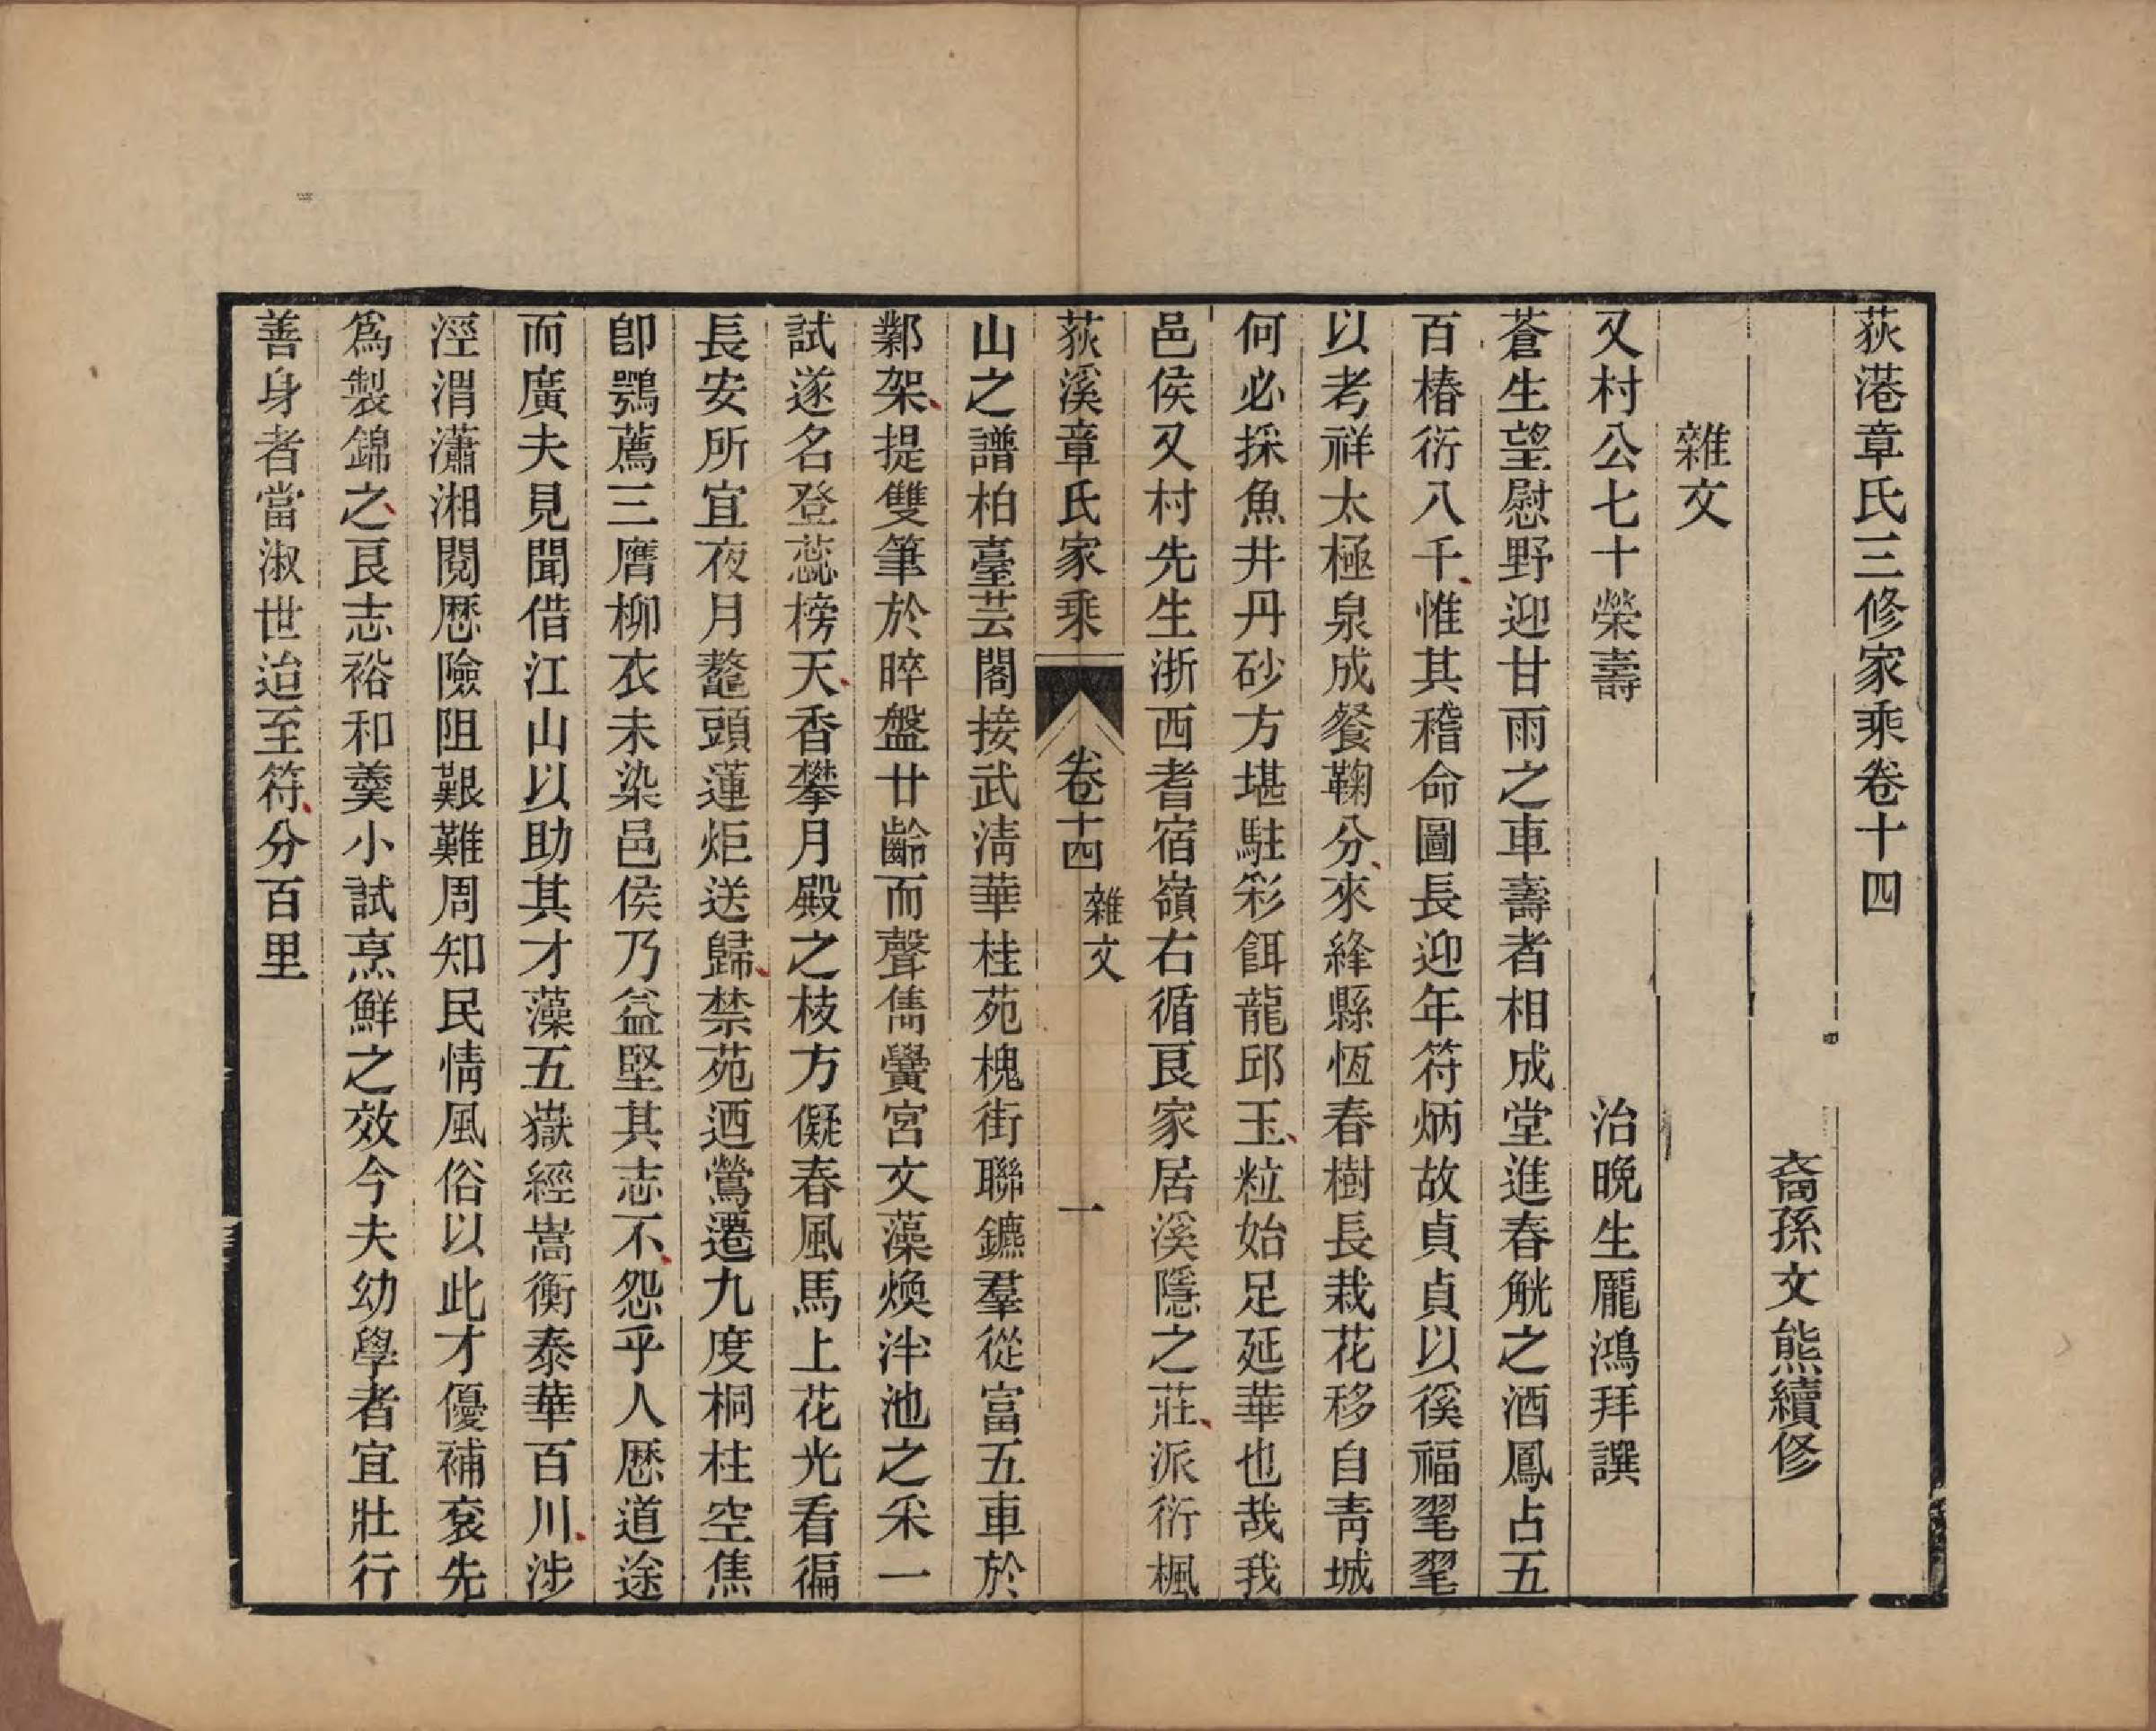 荻港章氏三修家乘卷十四
裔孫文熊續修
雜文
又村公七十榮壽　治晚生龎鴻拜譔
蒼生望慰野迎甘雨之車壽者相成堂進春觥之酒鳳占五
百椿衍八千惟其稽命圖長迎年符炳故貞貞以徯福翟翟
以考祥太極泉成餐鞠分來絳縣恆春樹長栽花移自青城
何必採魚井丹砂方堪駐彩餌龍邱玉粒始足延華也哉我
邑侯又村先生浙西耆宿嶺右循良家居溪隱之莊派衍楓
荻溪章氏家乘　卷十四　雜文　一
山之譜柏臺芸閣接武淸華桂苑槐街聯鑣羣從富五車於
鄴架提雙筆於晬盤廿齡而聲儁黌宮文藻煥泮池之采一
試遂名登蕊榜天香攀月殿之枝方儗春風馬上花光看徧
長安所宜夜月鼇頭蓮炬送歸禁苑迺鶯遷九度桐柱空焦
卽鶚薦三膺柳衣未染邑侯乃益堅其志不怨乎人歷道途
而廣夫見聞借江山以助其才藻五嶽經嵩衡泰華百川涉
涇渭瀟湘閱歷險阻艱難周知民情風俗以此才優補袞先
爲製錦之良志裕和羹小試烹鮮之效今夫幼學者宜壯行
善身者當淑世迨至符分百里